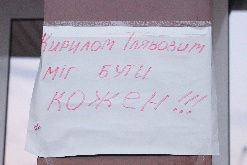 Кирилом Ілявовим
міг бути
кожен!!!